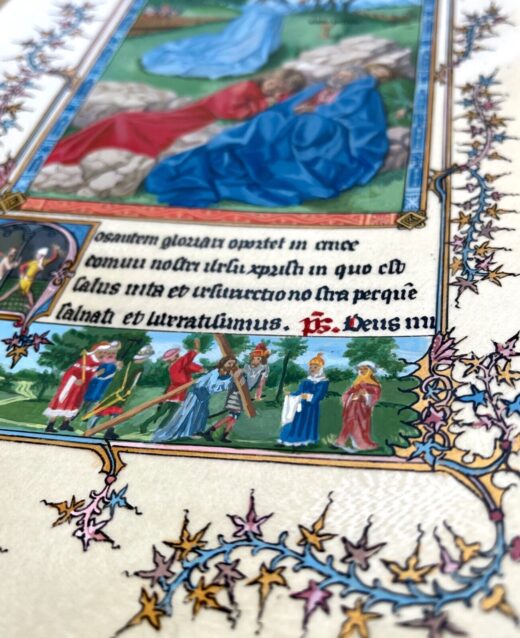 osautem gloriari oportet in cruce
domini nostri ihesu xpristi in quo est
salus uita et resurrectio nostra perquē
saluati et liberati sumus. ps. Deus mi